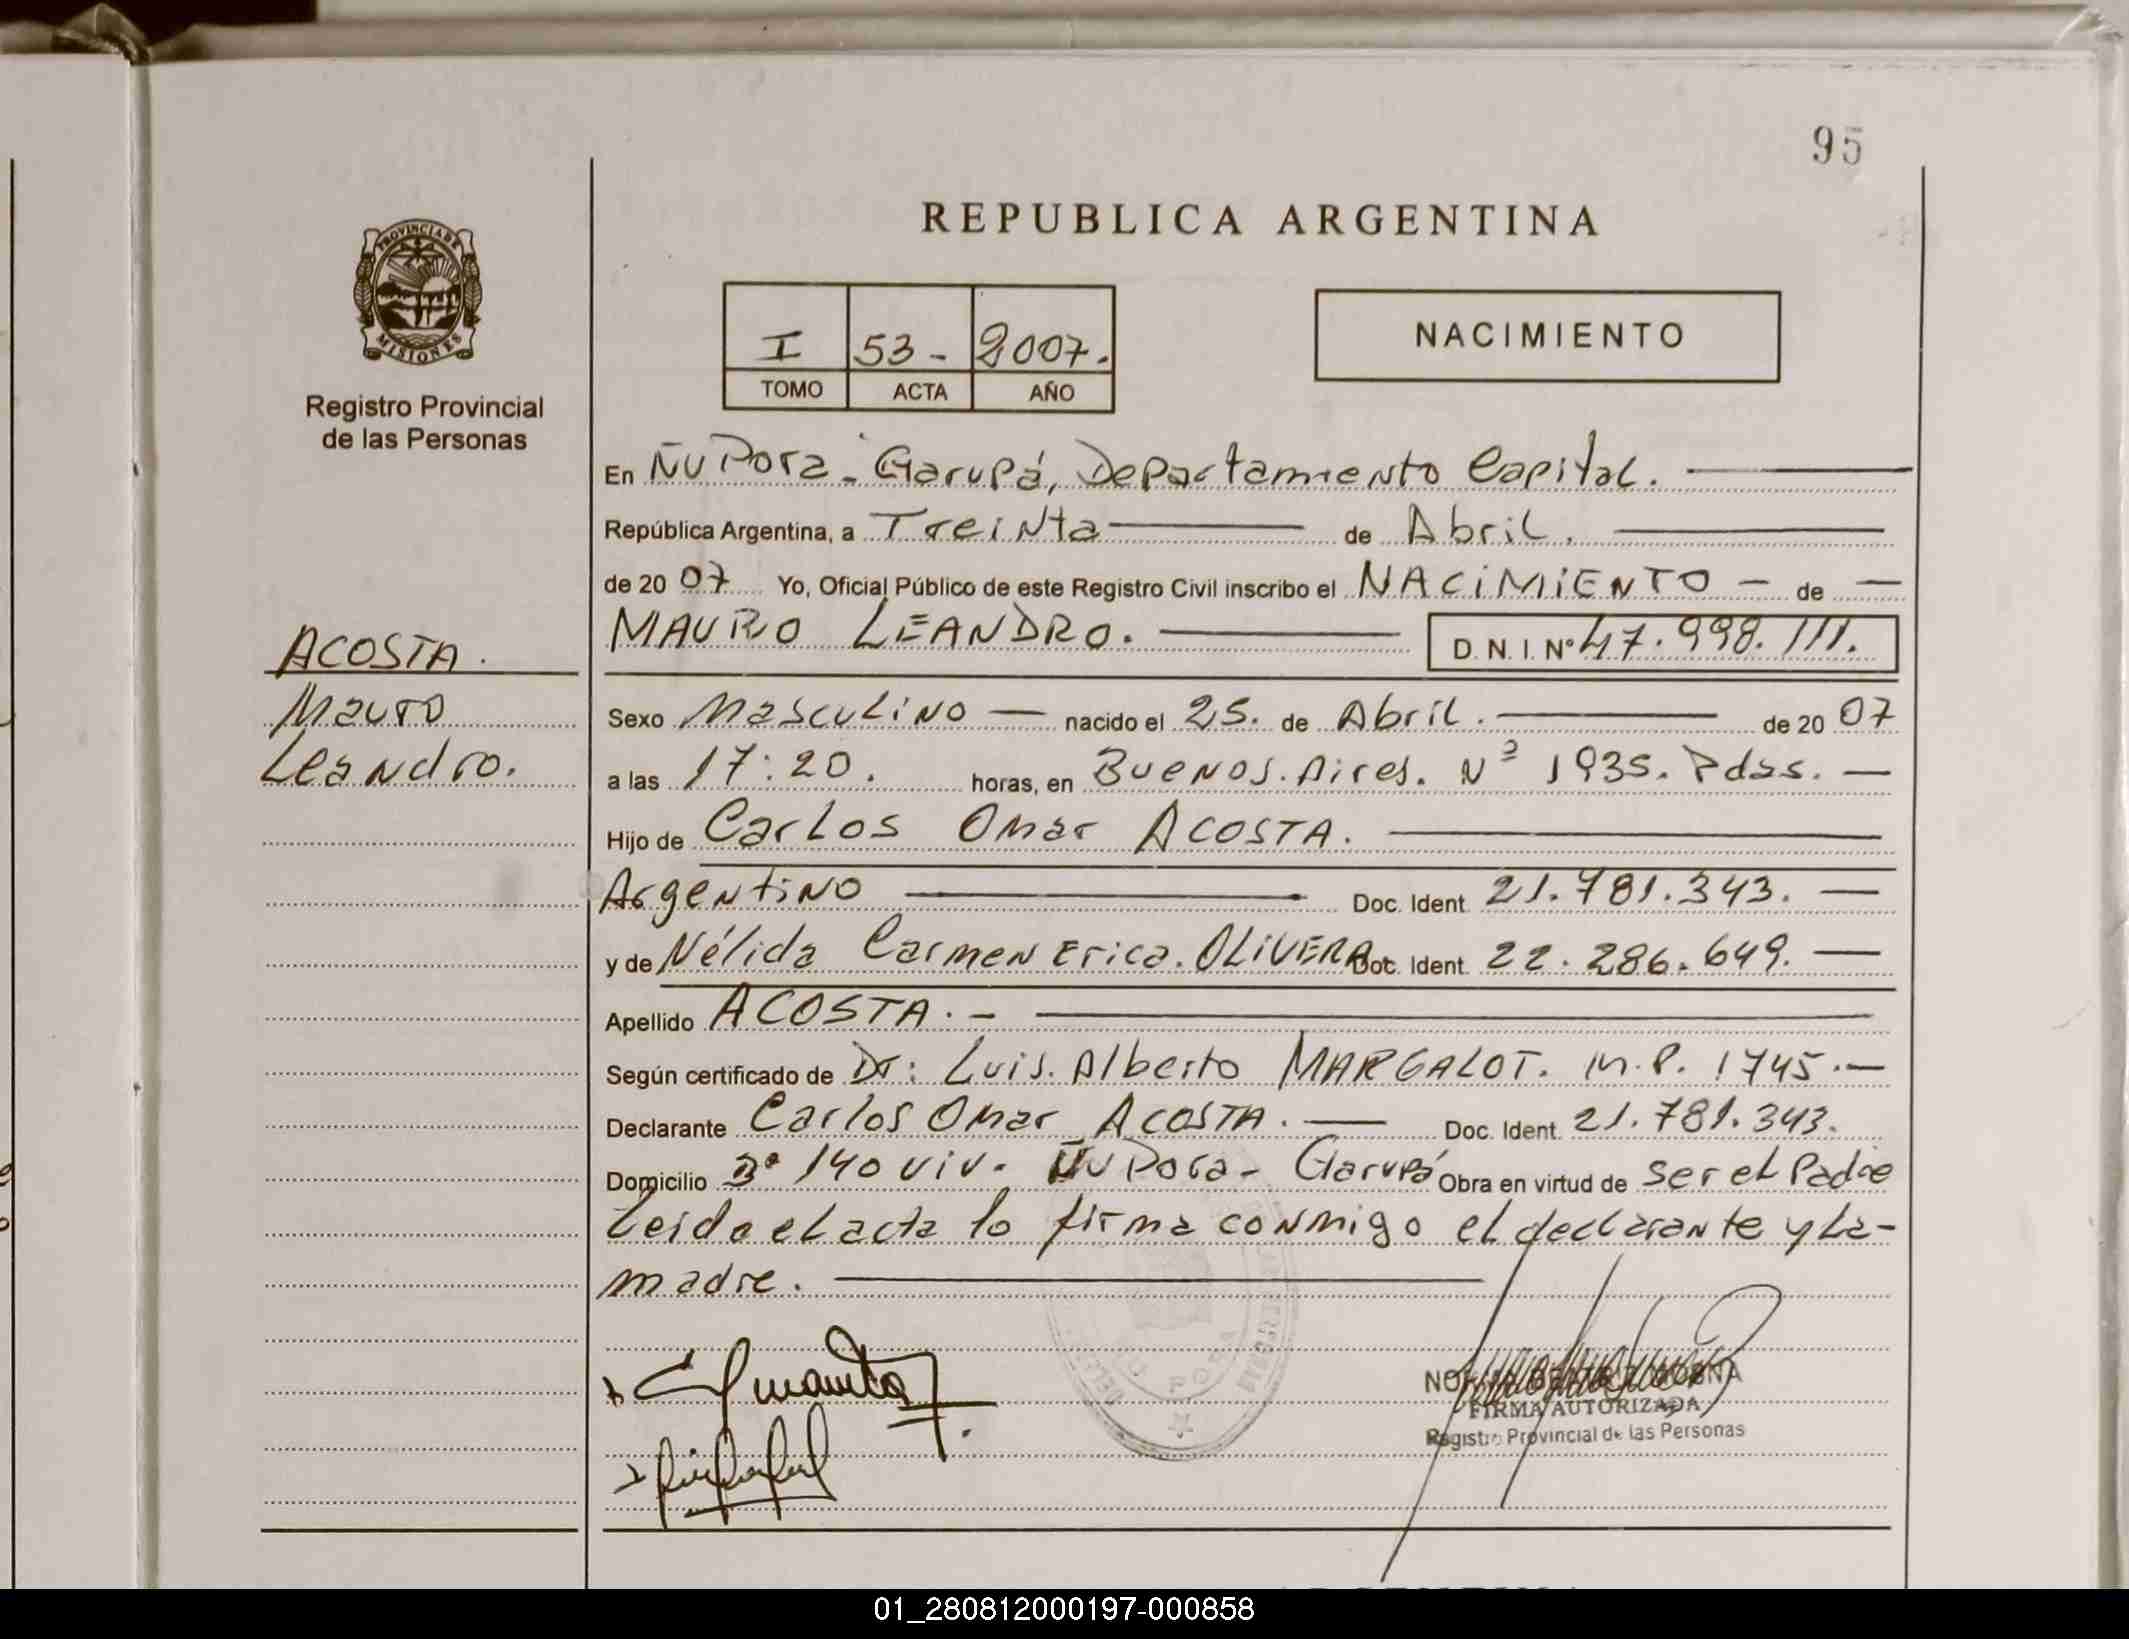 95
REPUBLICA ARGENTINA
PROVINCIA DE
MISIONES
Registro Provincial
de las Personas
I 53- 2007.
TOMO ACTA AÑO
NACIMIENTO
En Ñu Pora - Garupá, Departamiento Capital.
República Argentina, a Treinta de Abril.
de 20 07 Yo, Oficial Público de este Registro Civil inscribo el NACIMIENTO - de
MAURO LEANDRO. D. N. I. Nº 47.998.111.
ACOSTA.
Mauro
Leandro.
Sexo Masculino nacido el 25. de Abril. de 20 07
a las 17:20. horas, en Buenos. Aires. Nº 1935. Pdas.
Hijo de Carlos Omar ACOSTA.
Argentino Doc. Ident. 21.781.343.
y de Nélida Carmen Erica. OLIVERA Doc. Ident. 22.286.649.
Apellido ACOSTA.-
Según certificado de Dr: Luis. Alberto MARGALOT. M.P. 1745.-
Declarante Carlos Omar ACOSTA. Doc. Ident. 21.781.343.
Domicilio 3º 140 viv. Ñu Pora - Garupá Obra en virtud de ser el Padre
Leida el acta lo firma conmigo el declarante y la-
madre.
FIRMA AUTORIZADA
Registro Provincial de las Personas
01_280812000197-000858